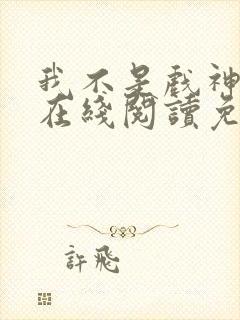 我不是戲神
在綫閱讀免
許飛